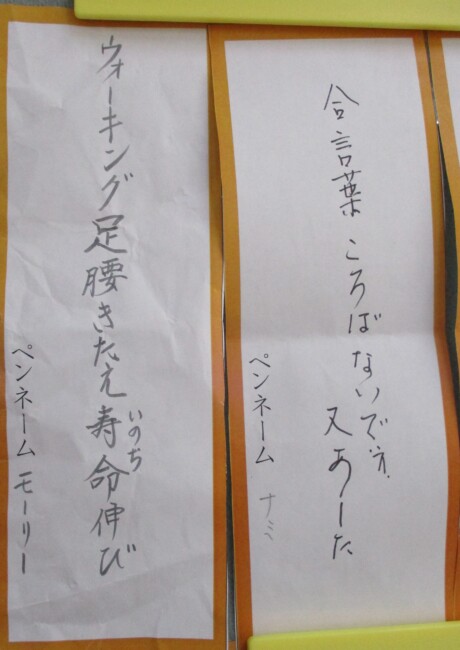 合言葉 ころばないでネ
又あした
ペンネーム ナミ
ウォーキング足腰きたえ寿命伸び
いのち
ペンネーム モーリー